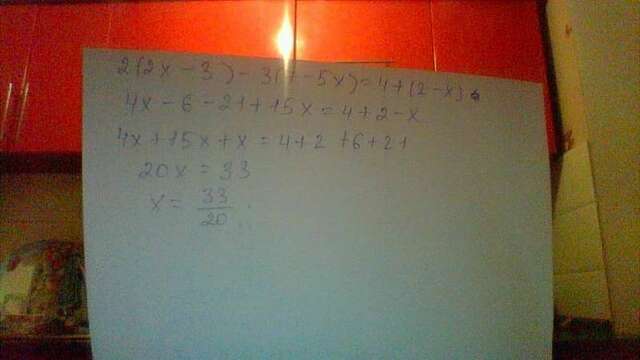 2(2x - 3) - 3(7 - 5x) = 4 + (2 - x)
4x - 6 - 21 + 15x = 4 + 2 - x
4x + 15x + x = 4 + 2 + 6 + 21
20x = 33
x = 33/20